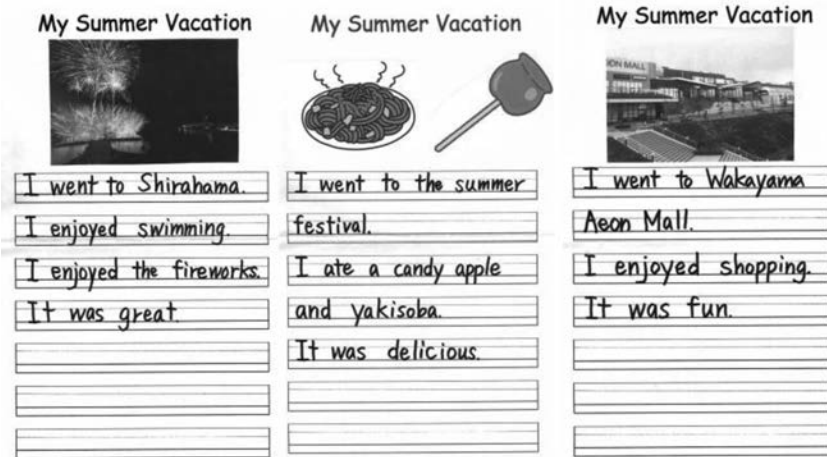 My Summer Vacation
I went to Shirahama.
I enjoyed swimming.
I enjoyed the fireworks.
It was great
My Summer Vacation
I went to the summer
festival.
I ate a candy apple
and yakisoba.
It was delicious.
My Summer Vacation
ON MALL
I went to Wakayama
Aeon Mall.
I enjoyed shopping.
It was fun.